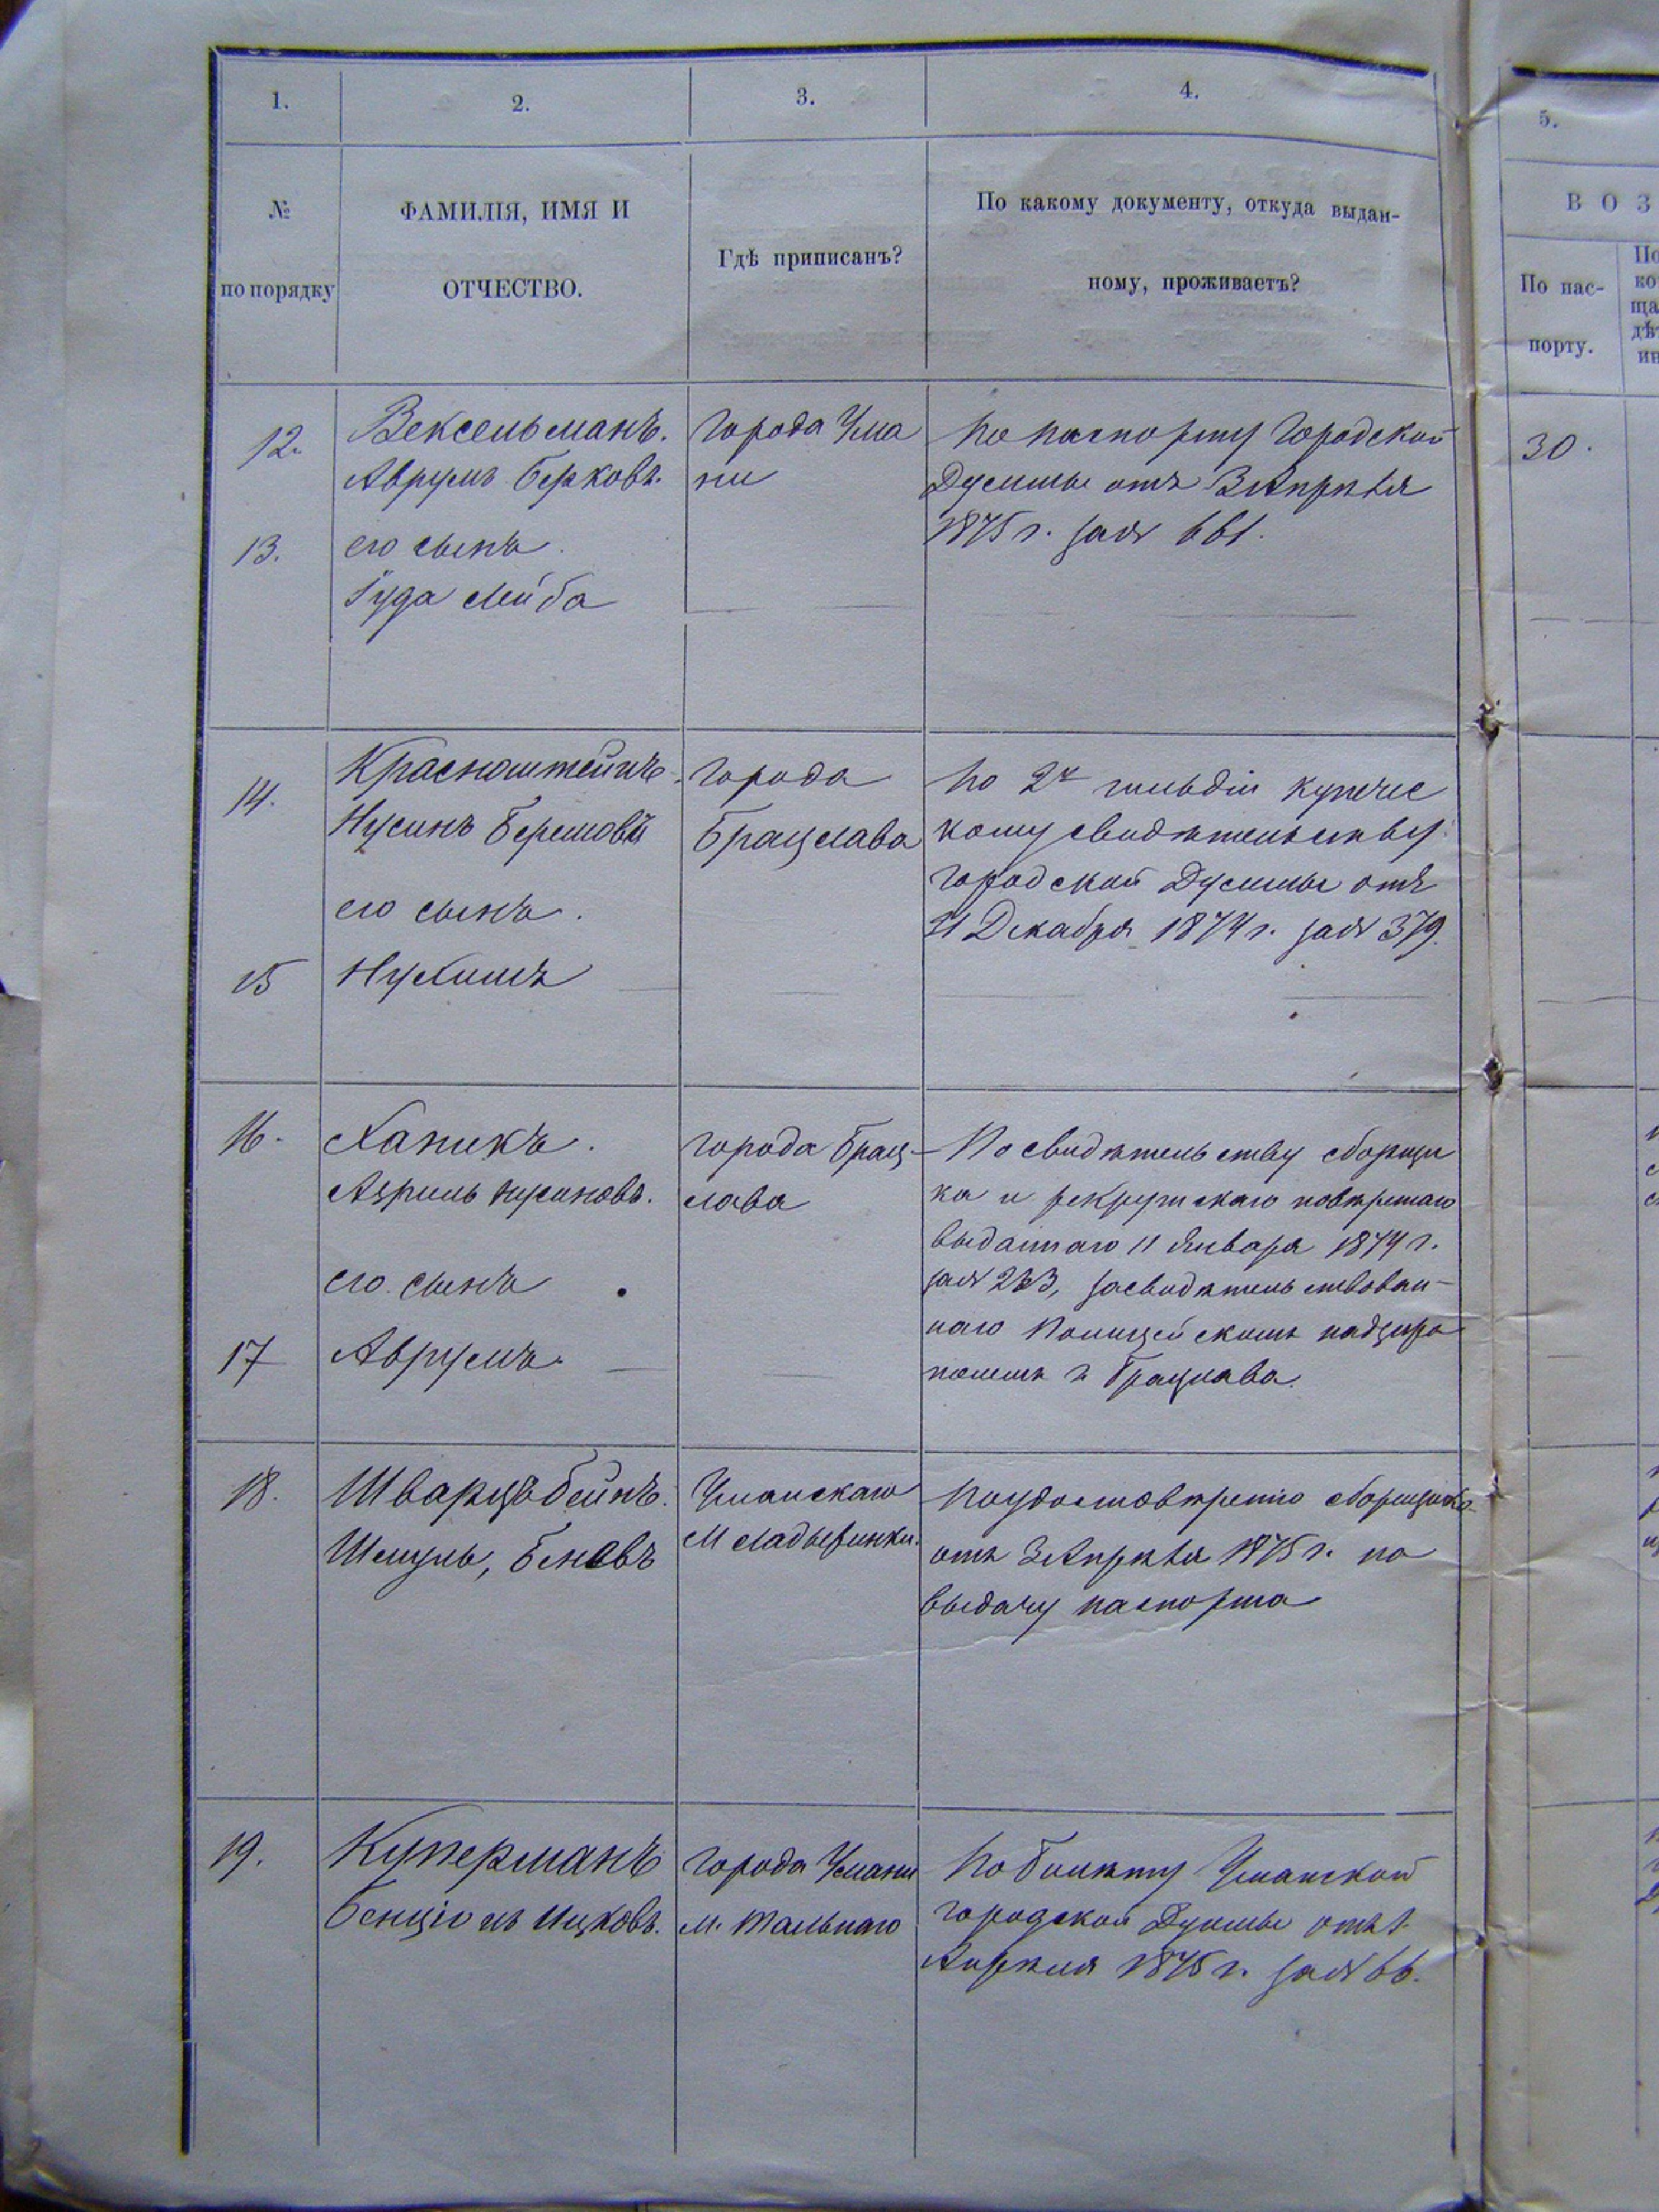 1.
2.
3.
4.
5.
№
по порядку
ФАМИЛІЯ, ИМЯ И
ОТЧЕСТВО.
Гдѣ приписанъ?
По какому документу, откуда выдан-
ному, проживаетъ?
ВОЗ
По пас-
порту.
12.
Вексельманъ.
Аврумъ Берковъ.
города Ума
ни
По паспорту Городской
Думы отъ 3 Апрѣля
1875 г. за № 661.
30.
13.
его сынъ
Іуда Лейба
14.
Красноштейнъ
Нусинъ Берковъ
города
Брацлава
По 2й гильдіи купечес
кому свидѣтельству
городской Думы отъ
31 Декабря 1874 г. за № 379.
его сынъ.
15
Нухимъ
16.
Ханикъ.
Азриль Нусиновъ.
города Брац-
лава
По свидѣтельству сборщи
ка и рекрутскаго повѣреннаго
выданнаго 11 Января 1874 г.
за № 263, засвидѣтельствован-
наго Полицейскимъ надзира
телемъ г Брацлава.
его сынъ
17
Аврумъ.
18.
Шварцъбейнъ.
Шмуль, Беновъ
Уманскаго
М Ладыжинки.
По удостовѣренію сборщика
отъ 3 Апрѣля 1875 г. на
выдачу паспорта
19.
Куперманъ
Бенціонъ Ицковъ.
города Умани
м. Тальнаго
По билету Уманской
городской Думы отъ 1
Апрѣля 1875 г. за № 66.